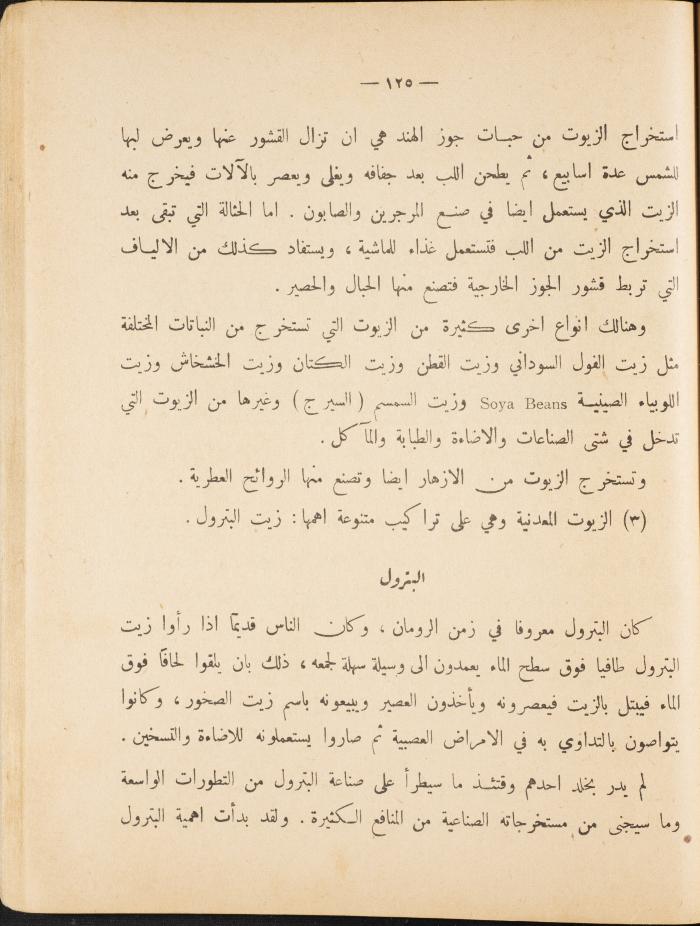 — ١٢٥ —
استخراج الزيوت من حبات جوز الهند هي ان تزال القشور عنها ويعرض لبها
للشمس عدة اسابيع ، ثم يطحن اللب بعد جفافه ويغلى ويعصر بالآلات فيخرج منه
الزيت الذي يستعمل ايضا في صنع المرجرين والصابون . اما الحثالة التي تبقى بعد
استخراج الزيت من اللب فتستعمل غذاء للماشية ، ويستفاد كذلك من الالياف
التي تربط قشور الجوز الخارجية فتصنع منها الحبال والحصير .
وهنالك انواع اخرى كثيرة من الزيوت التي تستخرج من النباتات المختلفة
مثل زيت الفول السوداني وزيت القطن وزيت الكتان وزيت الخشخاش وزيت
اللوبياء الصينية Soya Beans وزيت السمسم ( السيرج ) وغيرها من الزيوت التي
تدخل في شتى الصناعات والاضاءة والطبابة والمآكل .
وتستخرج الزيوت من الازهار ايضا وتصنع منها الروائح العطرية .
(٣) الزيوت المعدنية وهي على تراكيب متنوعة اهمها : زيت البترول .
البترول
كان البترول معروفا في زمن الرومان ، وكان الناس قديمًا اذا رأوا زيت
البترول طافيا فوق سطح الماء يعمدون الى وسيلة سهلة لجمعه ، ذلك بان يلقوا لحافًا فوق
الماء فيبتل بالزيت فيعصرونه ويأخذون العصير ويبيعونه باسم زيت الصخور ، وكانوا
يتواصون بالتداوي به في الامراض العصبية ثم صاروا يستعملونه للاضاءة والتسخين .
لم يدر بخلد احدهم وقتئذ ما سيطرأ على صناعة البترول من التطورات الواسعة
وما سيجنى من مستخرجاته الصناعية من المنافع الكثيرة . ولقد بدأت اهمية البترول